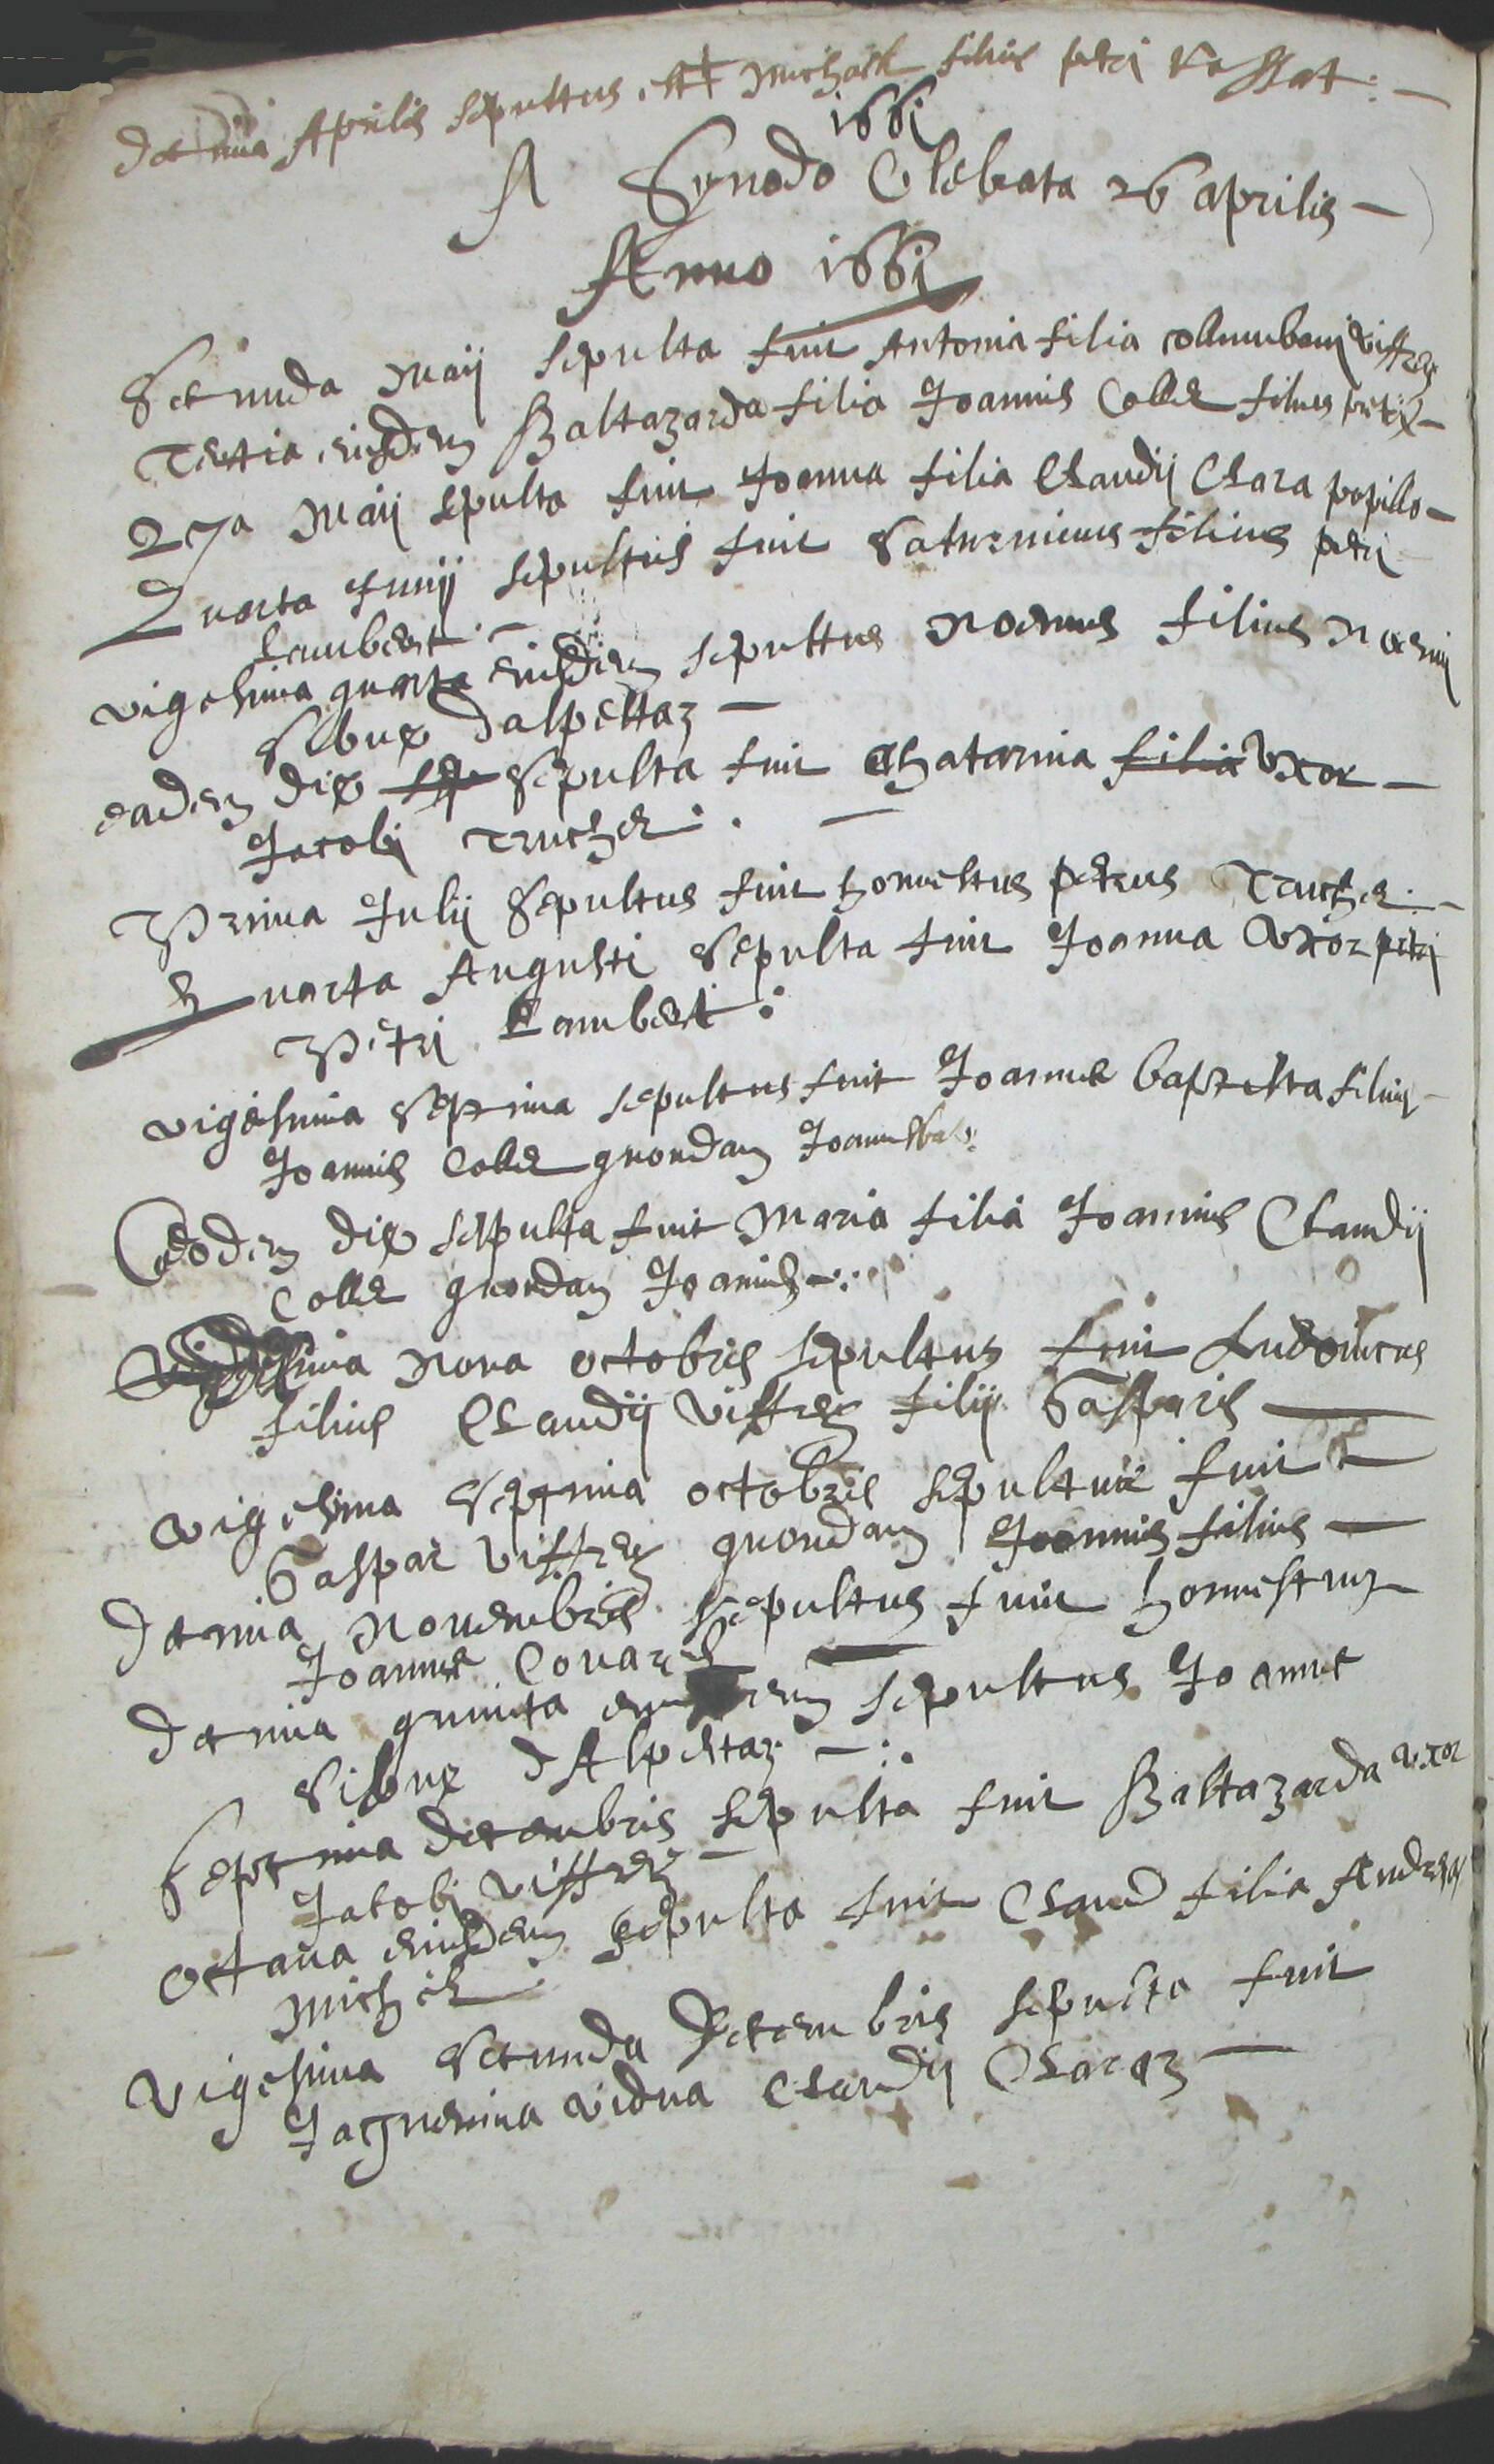 decima Aprilis sepultus est Michael filius petri Rossat :—
1661
A Synodo Celebata 26 aprilis —
Anno 1661
Secunda Maij sepulta fuit Antonia filia collumbani viffrey
Tertia eiusdem Baltazarda filia Joannis Coller filius petri —
27a Maij sepulta fuit Joanna filia Claudij Claraz popillo —
Quarta Junij sepultus fuit Saturninus filius petri
Lambert . —
vigesima quarta eiusdem sepultus Noemus filius Noemi
Sibue dalpettaz —
eadem die sepulta fuit Chatarina filia Uxor —
Jacobi Trucher . —
Prima Julij Sepultus fuit honnestus petrus Trucher . —
Quarta Augusti Sepulta fuit Joanna Uxor petri
Petri Lambert :
vigesima Septima sepultus fuit Joannes baptista filius
Joannis Coller quondam
Eodem die sepulta fuit Maria filia Joannis Claudij
Coller quondam Joannis — :
Vigesima Nona octobris sepultus fuit Ludovicus
filius Claudij Viffrey filij Gasparis —
vigesima Septima octobris sepultus fuit —
Gaspar Viffrey quondam Joannis filius —
decima Novembris sepultus fuit honnestus
Joannes Covarel
decima quinta eiusdem sepultus Joannes
Sibue dAlpettaz — :
Septima decembris sepulta fuit Baltazarda uxor
Jacobi viffrey —
octava eiusdem sepulta fuit Claud filia Andreas
Michel
Vigesima Secunda Decembris sepulta fuit
Jaquemina vidua Claudij Claraz —